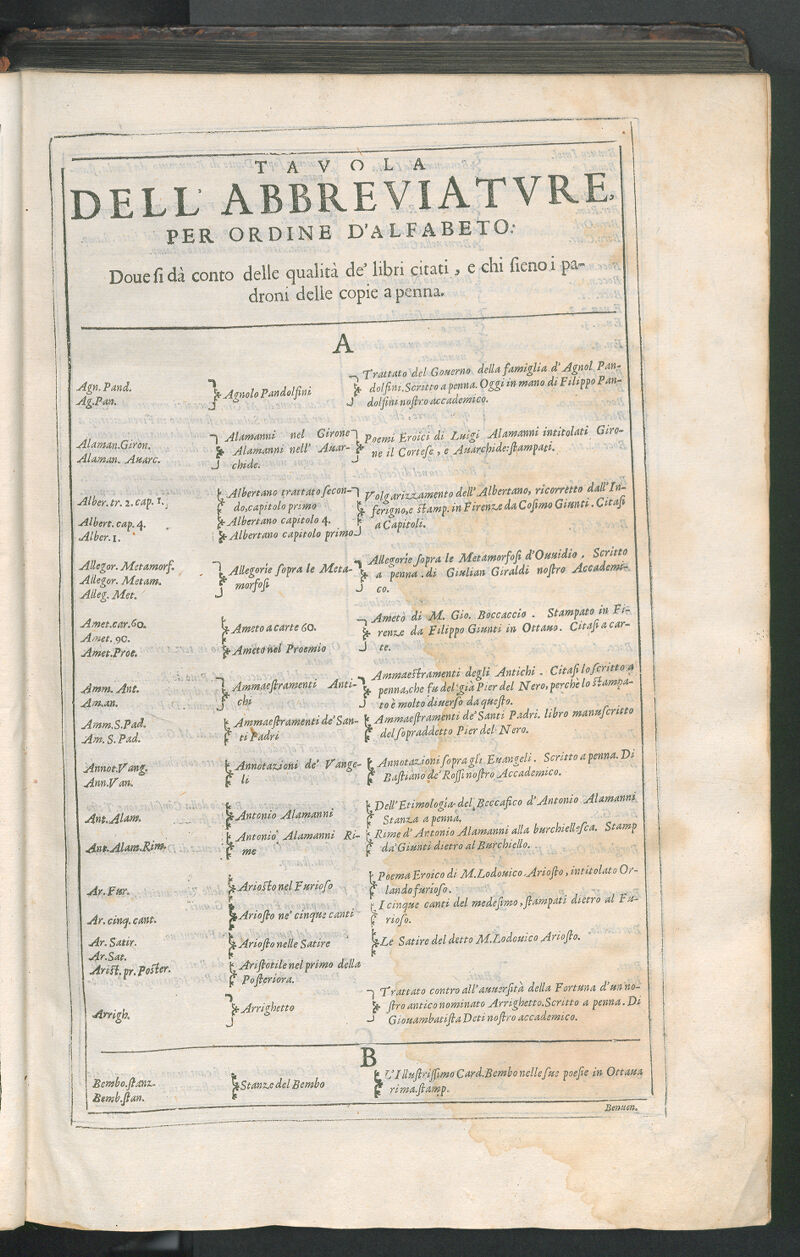 TAVOLA
DELL' ABBREVIATVRE,
PER ORDINE D'ALFABETO.
Doue si dà conto delle qualità de' libri citati, e chi sieno i pa-
droni delle copie a penna.
A
Agn. Pand.
Ag. Pan.
Agnolo Pandolfini
Trattato del Gouerno della famiglia d'Agnol Pan-
dolfini. Scritto a penna. Oggi in mano di Filippo Pan-
dolfini nostro accademico.
Alaman. Giron.
Alaman. Auarc.
Alamanni nel Girone
Alamanni nell' Auar-
chide.
Poemi Eroici di Luigi Alamanni intitolati Giro-
ne il Cortese, e Auarchide: stampati.
Alber. tr. 2. cap. 1.
Albert. cap. 4.
Alber. 1.
Albertano trattato secon-
do, capitolo primo
Albertano capitolo 4.
Albertano capitolo primo
Volgarizzamento dell' Albertano, ricorretto dall' In-
ferigno, e stamp. in Firenze da Cosimo Giunti. Citasi
a Capitoli.
Allegor. Metamorf.
Allegor. Metam.
Alleg. Met.
Allegorie sopra le Meta-
morfosi
Allegorie sopra le Metamorfosi d'Ouuidio. Scritto
a penna. di Giulian Giraldi nostro Accademi-
co.
Amet. car. 60.
Amet. 90.
Amet. Proe.
Ameto a carte 60.
Ameto nel Proemio
Ameto di M. Gio. Boccaccio. Stampato in Fi-
renze da Filippo Giunti in Ottauo. Citasi a car-
te.
Amm. Ant.
Am. an.
Ammaestramenti Anti-
chi
Ammaestramenti degli Antichi. Citasi lo scritto a
penna, che fu del già Pier del Nero, perchè lo stampa-
to è molto diuerso da questo.
Amm. S. Pad.
Am. S. Pad.
Ammaestramenti de' San-
ti Padri
Ammaestramenti de' Santi Padri. libro manuscritto
del sopraddetto Pier del Nero.
Annot. Vang.
Ann. Van.
Annotazioni de' Vange-
li
Annotazioni sopra gli Euangeli. Scritto a penna. Di
Bastiano de' Rossi nostro Accademico.
Ant. Alam.
Antonio Alamanni
Dell' Etimologia del Beccafico d'Antonio Alamanni
Stanza a penna.
Ant. Alam. Rim.
Antonio Alamanni Ri-
me
Rime d'Antonio Alamanni alla burchiellesca. Stamp
da' Giunti dietro al Burchiello.
Ar. Fur.
Ariosto nel Furioso
Poema Eroico di M. Lodouico Ariosto, intitolato Or-
lando furioso.
Ar. cinq. cant.
Ariosto ne' cinque canti
I cinque canti del medesimo, stampati dietro al Fu-
rioso.
Ar. Satir.
Ar. Sat.
Ariosto nelle Satire
Le Satire del detto M. Lodouico Ariosto.
Arist. pr. Poster.
Aristotile nel primo della
Posteriora.
Arrigh.
Arrighetto
Trattato contro all' auuersità della Fortuna d'un no-
stro antico nominato Arrighetto. Scritto a penna. Di
Giouambatista Deti nostro accademico.
B
Bembo. stanz.
Bemb. stan.
Stanze del Bembo
L'Illustrissimo Card. Bembo nelle sue poesie in Ottaua
rima. stamp.
Benuen.